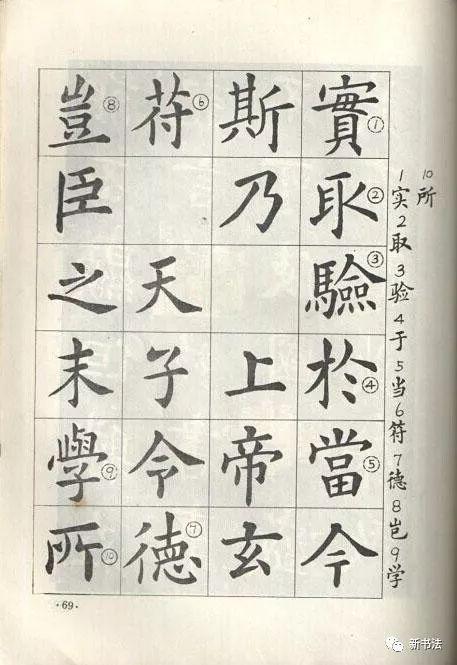 實①取②驗③於④當⑤今
斯乃 上帝玄
苻⑥ 天子令德⑦
豈⑧臣之末學⑨所⑩
1实2取3验4于5当6符7德8岂9学
10所
·69·
新书法